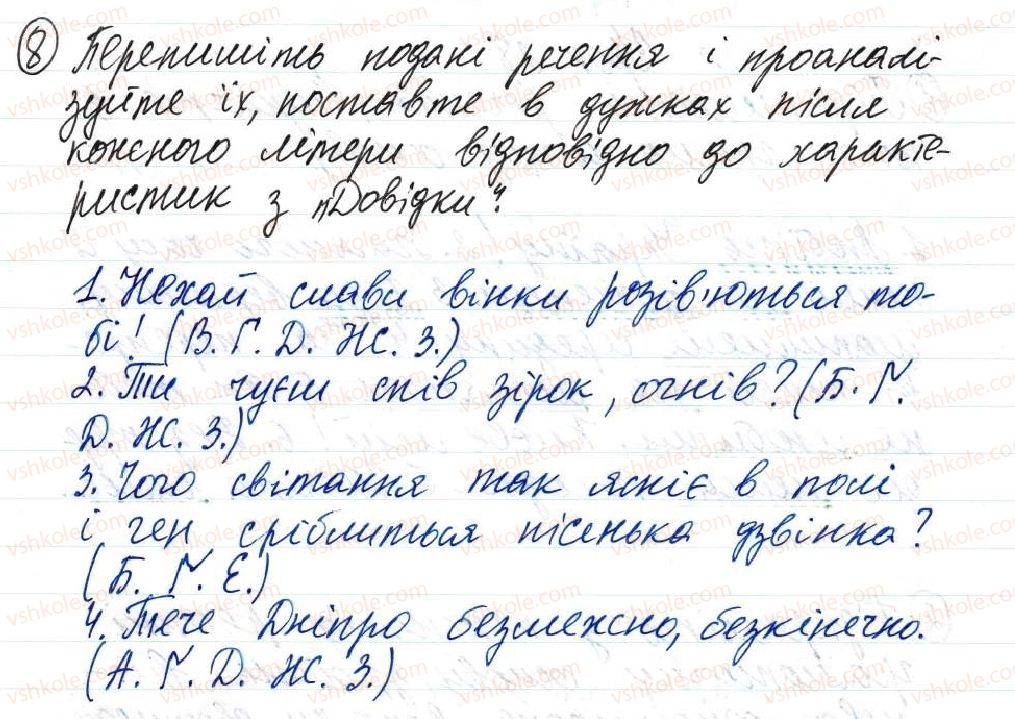 8 Перепишіть подані речення і проаналі-
зуйте їх, поставте в дужках після
кожного літери відповідно до характе-
ристик з „Довідки".
1. Нехай слави вінки розів'ються то-
бі! (В. Г. Д. Ж. З.)
2. Ти чуєш спів зірок, огнів? (Б. Ґ.
Д. Ж. З.)
3. Чого світання так ясніє в полі
і ген сріблиться пісенька дзвінка?
(Б. Ґ. Е.)
4. Тече Дніпро безмежно, безкінечно.
(А. Ґ. Д. Ж. З.)